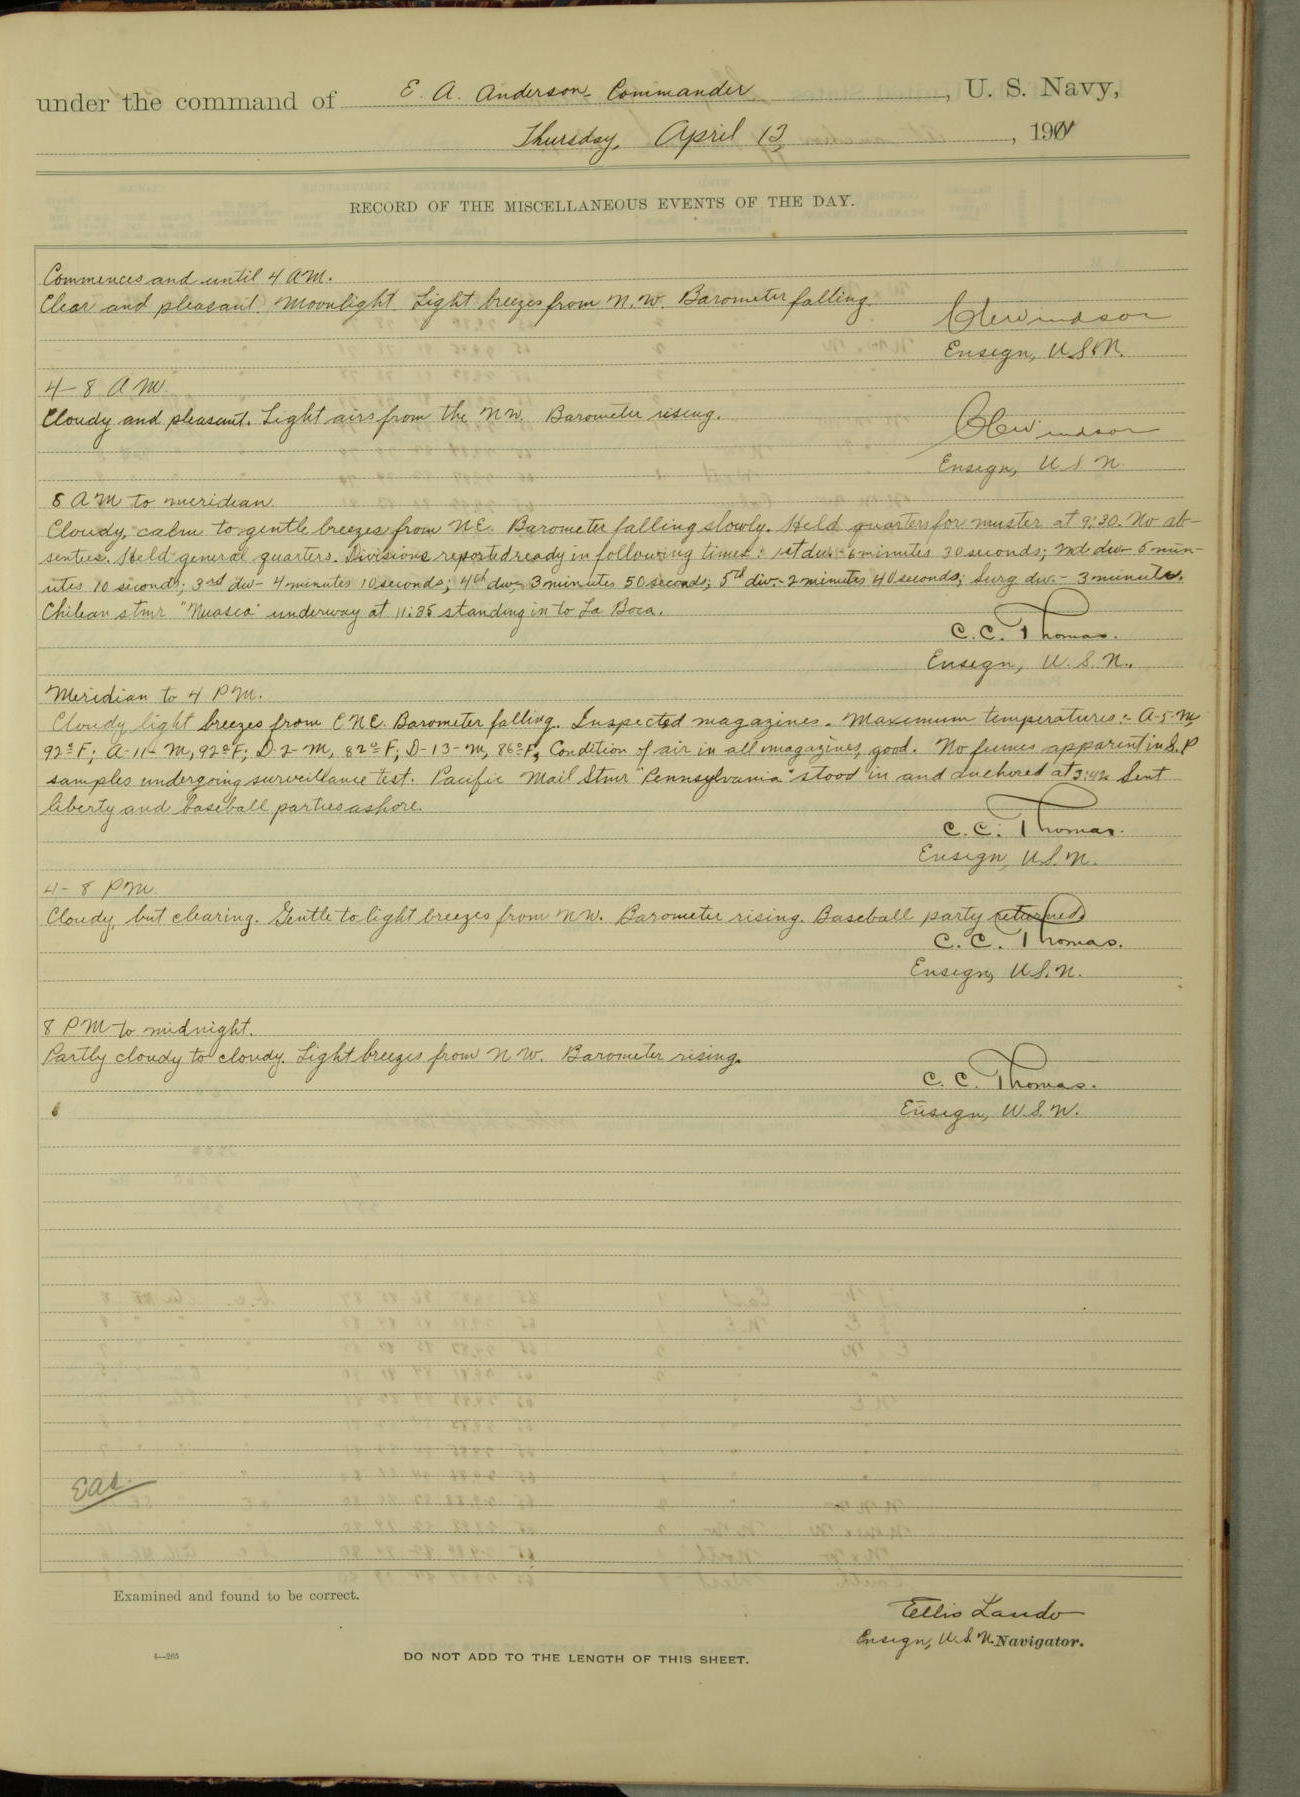 under the command of E. A. Anderson - Commander, U. S. Navy,
Thursday, April 13, 1911
RECORD OF THE MISCELLANEOUS EVENTS OF THE DAY.
Commences and until 4 AM.
Clear and pleasant. Moonlight. Light breezes from N.W. Barometer falling.
Windsor
Ensign, U.S.N.
4-8 AM.
Cloudy and pleasant. Light airs from the NW. Barometer rising.
Windsor
Ensign, U.S.N.
8 AM to meridian.
Cloudy, calm to gentle breezes from NE. Barometer falling slowly. Held quarters for muster at 9:30. No ab-
sentees. Held general quarters. Divisions reported ready in following times: 1st div.- 6 minutes 30 seconds; 2nd div- 5 min-
utes 10 seconds; 3rd div- 4 minutes 10 seconds; 4th div- 3 minutes 50 seconds; 5th div.- 2 minutes 40 seconds; Surg div.- 3 minutes.
Chilean stmr underway at 11:35 standing in to La Boca.
C. C. Thomas.
Ensign, U.S.N.
Meridian to 4 PM.
Cloudy light breezes from ENE. Barometer falling. Inspected magazines. Maximum temperatures:- A-5-M
92°F; A-11-M, 92°F; D-2-M, 82°F; D-13-M, 86°F, Condition of air in all magazines, good. No fumes apparent in S.P
samples undergoing surveillance test. Pacific Mail Stmr "Pennsylvania" stood in and anchored at 3:42 Sent
liberty and baseball parties ashore.
C. C. Thomas.
Ensign, U.S.N.
4-8 PM.
Cloudy, but clearing. Gentle to light breezes from NW. Barometer rising. Baseball party returned.
C. C. Thomas.
Ensign, U.S.N.
8 PM to midnight.
Partly cloudy to cloudy. Light breezes from NW. Barometer rising.
C. C. Thomas.
Ensign, U.S.N.
EAA.
Examined and found to be correct.
Ellis Lando
Ensign, U.S.N. Navigator.
4—265
DO NOT ADD TO THE LENGTH OF THIS SHEET.